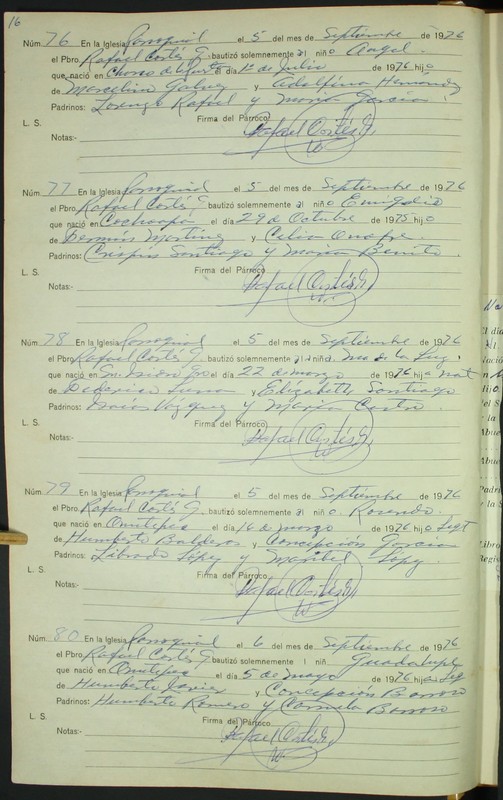 16
Núm. 76 En la Iglesia Parroquial el 5 del mes de Septiembre de 1976
el Pbro. Rafael Cortés G. bautizó solemnemente al niño Angel.
que nació en el día 1o de Julio de 1976 hijo
de Marcelino Galvez y Adalfina Hernández
Padrinos: Lorenzo Rafael y María García.
L. S. Firma del Párroco
Notas:- Rafael Cortés G.
Núm. 77 En la Iglesia Parroquial el 5 del mes de Septiembre de 1976
el Pbro. Rafael Cortés G. bautizó solemnemente al niño Emigdio
que nació en Cochoapa el día 29 de Octubre de 1975 hijo
de Martínez y Celia Onofre
Padrinos: Crispín Santiago y María Benito.
L. S. Firma del Párroco
Notas:- Rafael Cortés G.
Núm. 78 En la Iglesia Parroquial el 5 del mes de Septiembre de 1976
el Pbro. Rafael Cortés G. bautizó solemnemente al niña Ma de la Luz.
que nació en el día 22 de marzo de 1976 hija nat
de Federico Luna y Elizabeth Santiago
Padrinos: Vázquez y María Castro.
L. S. Firma del Párroco
Notas:- Rafael Cortés G.
Núm. 79 En la Iglesia Parroquial el 5 del mes de Septiembre de 1976
el Pbro. Rafael Cortés G. bautizó solemnemente al niño. Rosendo.
que nació en Ometepec el día 16 de marzo de 1976 hijo
de Humberto Balderas y Concepción García
Padrinos: Librado López y Maribel López.
L. S. Firma del Párroco
Notas:- Rafael Cortés G.
Núm. 80 En la Iglesia Parroquial el 6 del mes de Septiembre de 1976
el Pbro. Rafael Cortés G. bautizó solemnemente l niñ Guadalupe
que nació en Ometepec el día 5 de mayo de 1976 hija
de Humberto Javier y Concepción Barroso
Padrinos: Humberto Romero y Carmela Barroso
L. S. Firma del Párroco
Notas:- Rafael Cortés G.